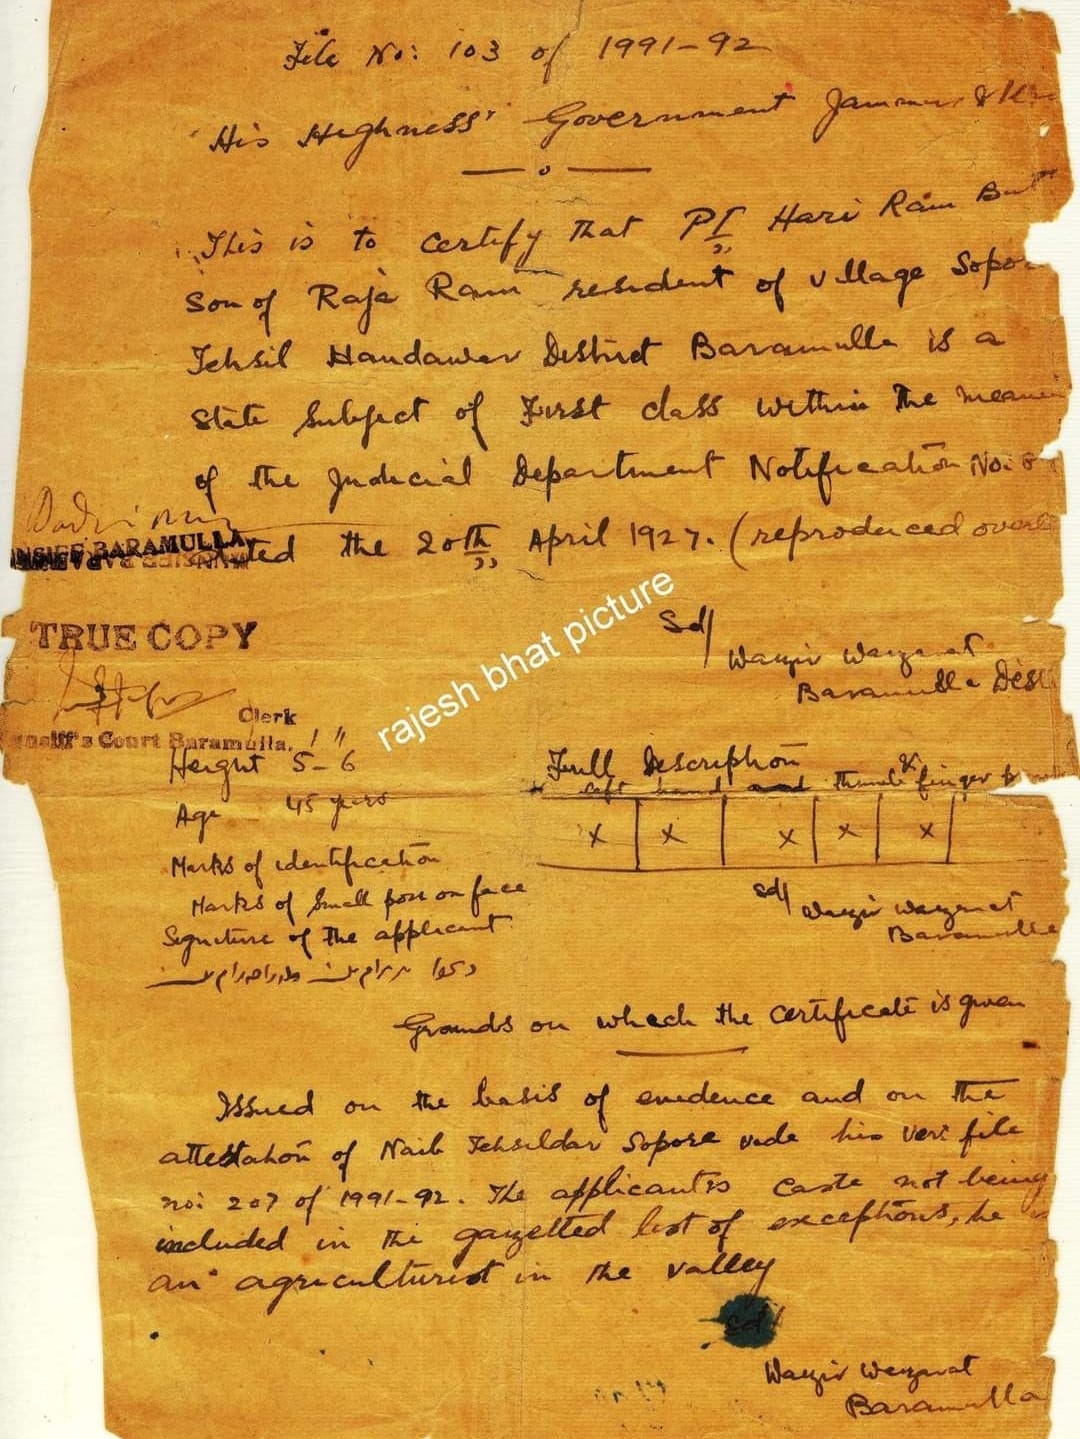 File No: 103 of 1991-92
His Highness' Government Jammu &
This is to certify that Pt Hari Ram
Son of Raja Ram resident of village Sopor
Tehsil Handawar District Baramulla is a
State Subject of First class within the
of the Judicial Department Notification No:
the 20th April 1927. (reproduced
MUNSIFF BARAMULLA
TRUE COPY
Sd/
Wazir Wazarat
Baramulla
Clerk
Court Baramulla.
rajesh bhat picture
Height 5'-6"
Age 45 years
Marks of identification
Marks of Small pox on face
Signature of the applicant
Full Description
left hand and thumb & finger
x x x x x
sd/ Wazir Wazarat
Baramulla
Grounds on which the certificate is given
Issued on the basis of evedence and on the
attestation of Naib Tehseldar Sopore vide his file
no: 207 of 1991-92. The applicant's caste not being
included in the gazetted list of exceptions, he
an agriculturist in the valley
sd/
Wazir Wazarat
Baramulla